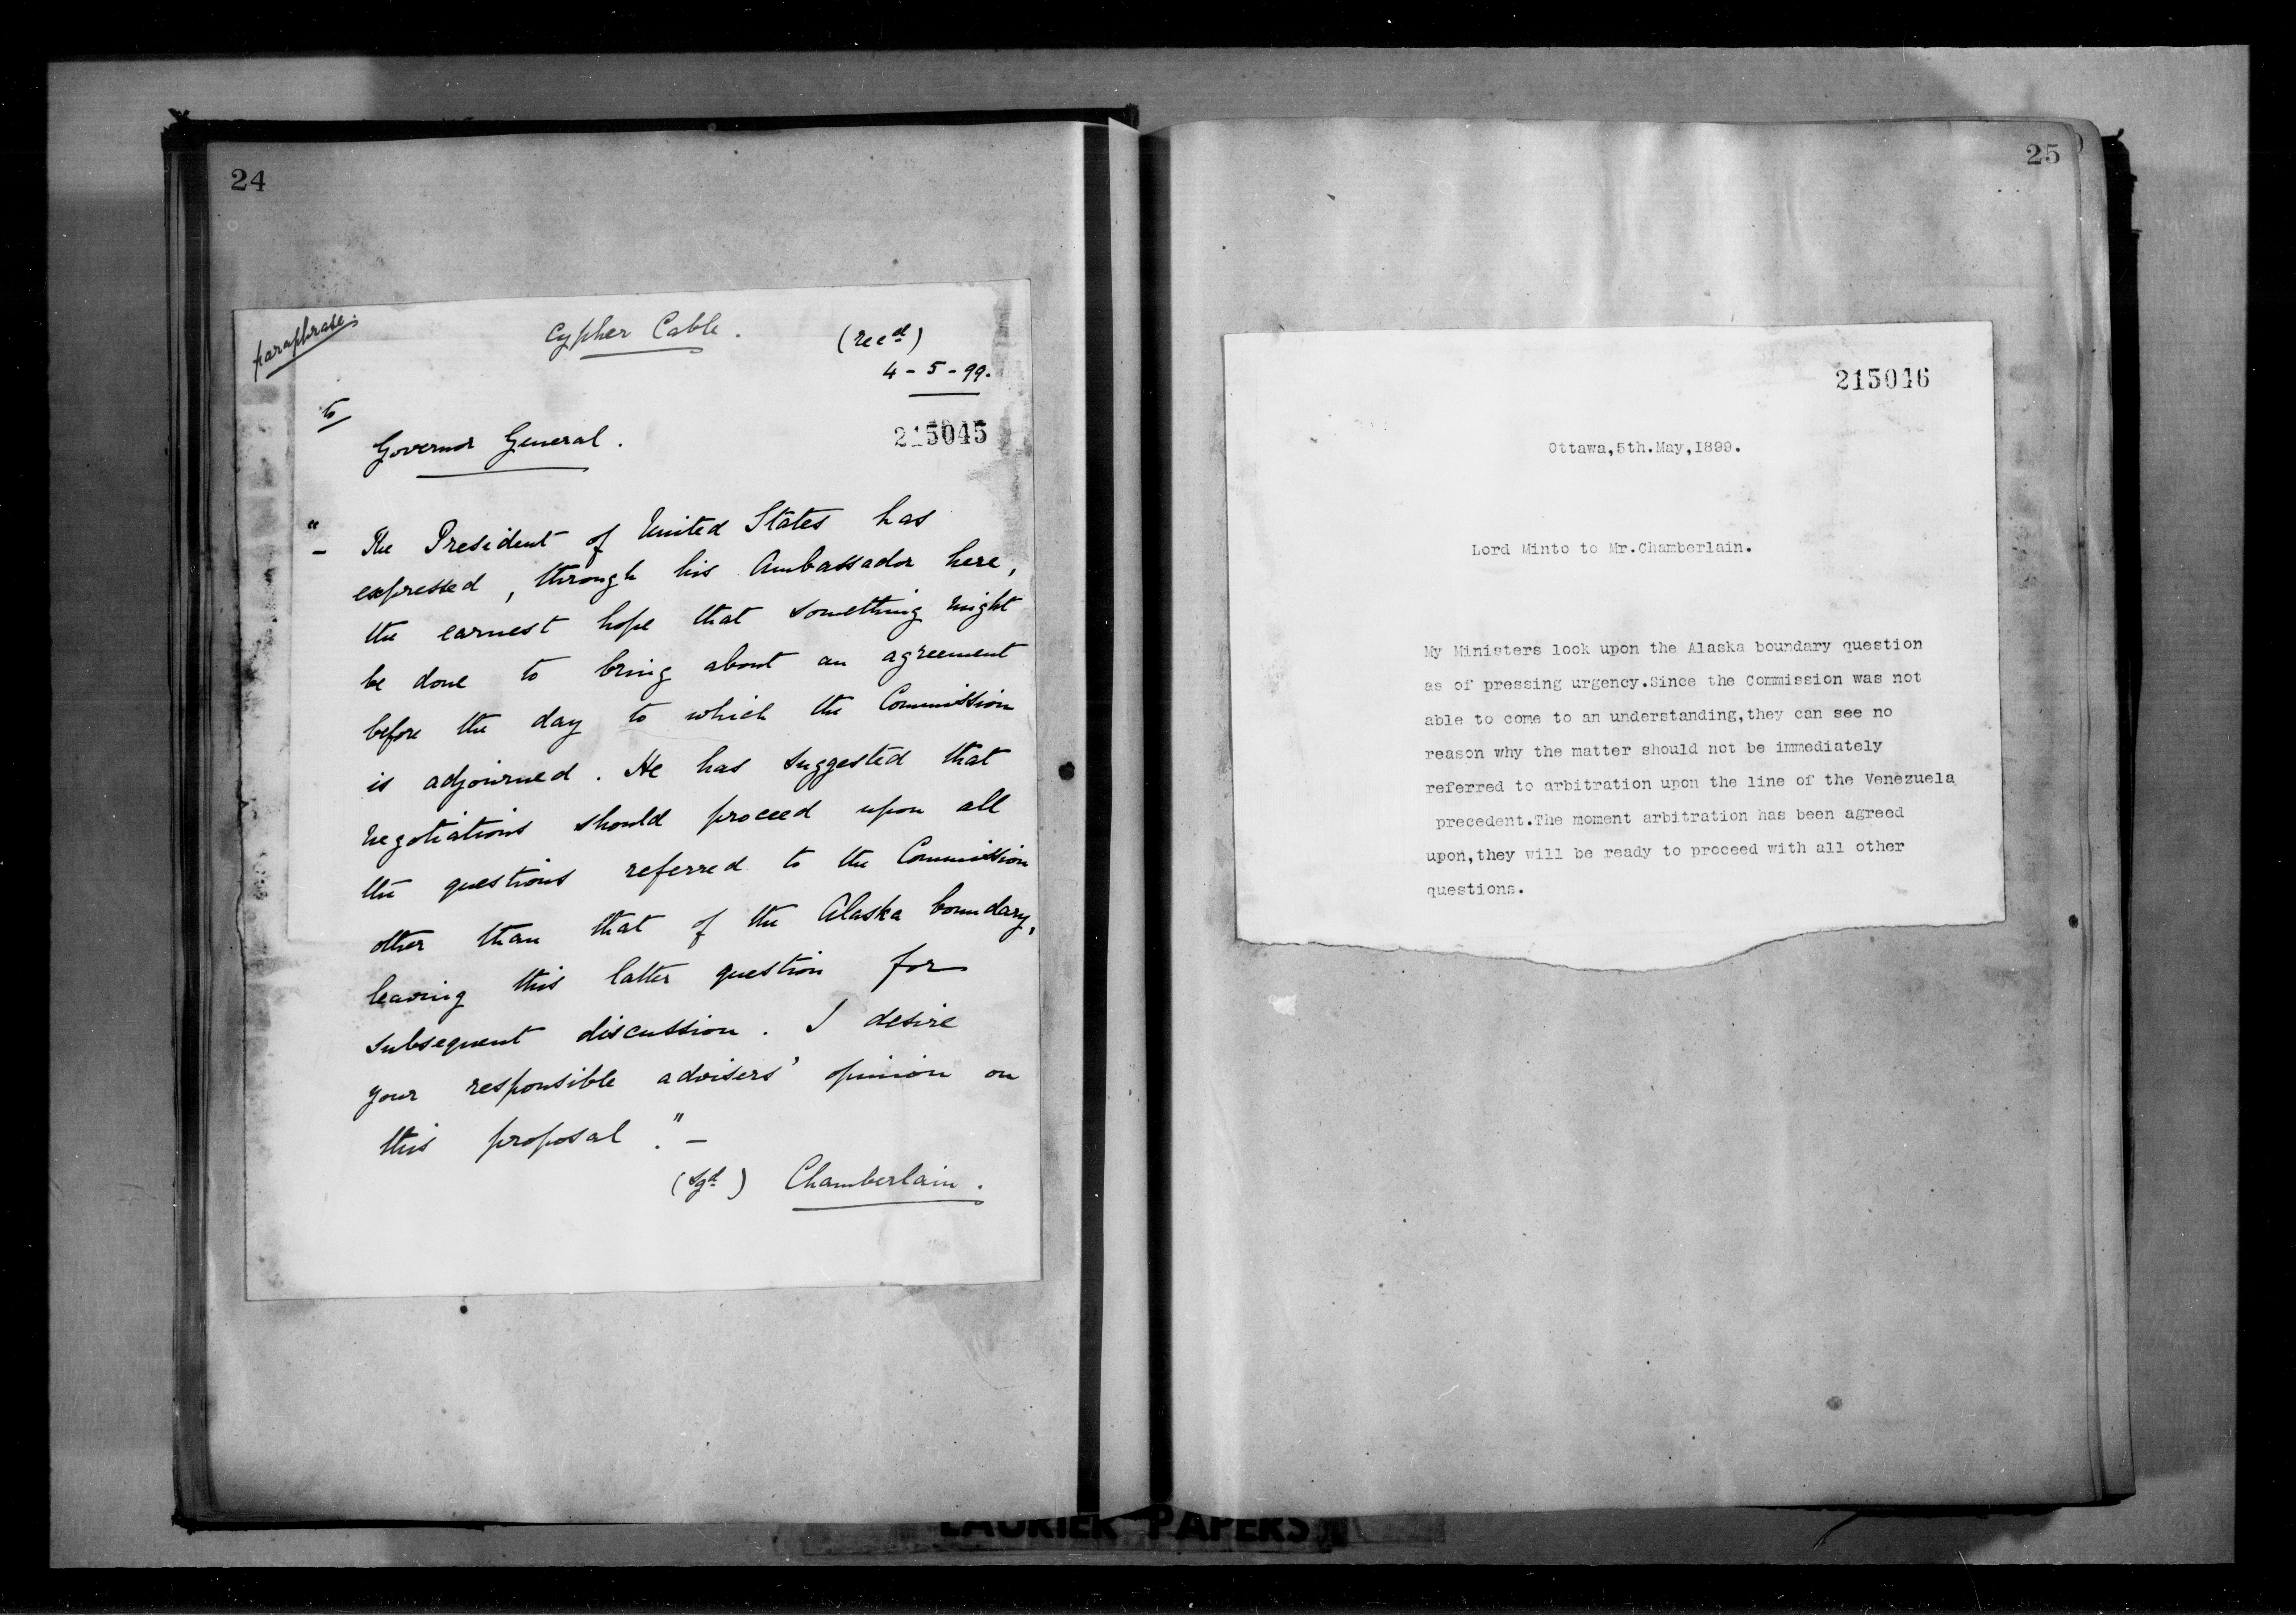 24
paraphrase.
Cypher Cable.
(recd)
4-5-99.
to
Governor General.
215045
"- The President of United States has
expressed, through his Ambassador here,
the earnest hope that something might
be done to bring about an agreement
before the day to which the Commission
is adjourned. He has suggested that
negotiations should proceed upon all
the questions referred to the Commission
other than that of the Alaska boundary,
leaving this latter question for
subsequent discussion. I desire
your responsible advisers' opinion on
this proposal."-
(sgd) Chamberlain.
25
215046
Ottawa,5th.May,1899.
Lord Minto to Mr.Chamberlain.
My Ministers look upon the Alaska boundary question
as of pressing urgency.Since the Commission was not
able to come to an understanding,they can see no
reason why the matter should not be immediately
referred to arbitration upon the line of the Venezuela
precedent.The moment arbitration has been agreed
upon,they will be ready to proceed with all other
questions.
LAURIER PAPERS